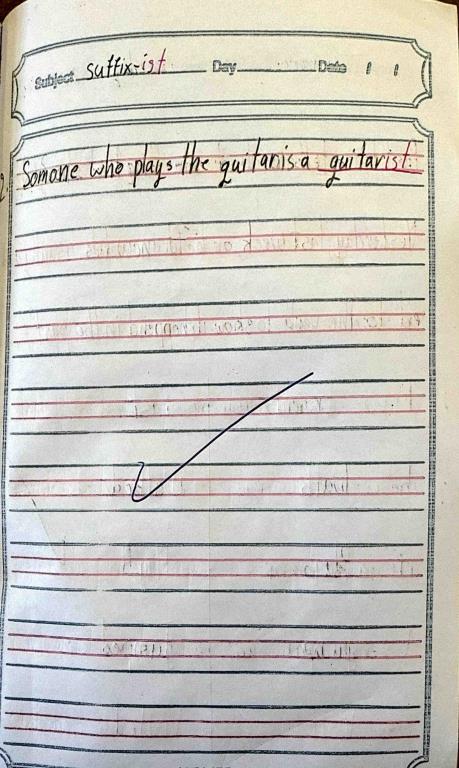 Subject suffix-ist Day Date / /
2. Somone who plays the guitar is a guitarist.